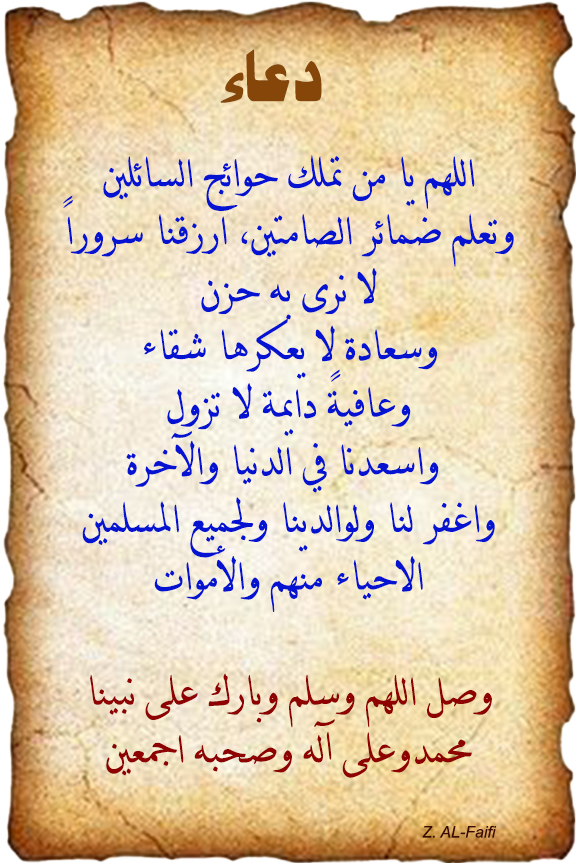 دعاء
اللهم يا من تملك حوائج السائلين
وتعلم ضمائر الصامتين، ارزقنا سروراً
لا نرى به حزن
وسعادة لا يعكرها شقاء
وعافيةً دايمة لا تزول
واسعدنا في الدنيا والآخرة
واغفر لنا ولوالدينا ولجميع المسلمين
الاحياء منهم والأموات
وصل اللهم وسلم وبارك على نبينا
محمدوعلى آله وصحبه اجمعين
Z. AL-Faifi